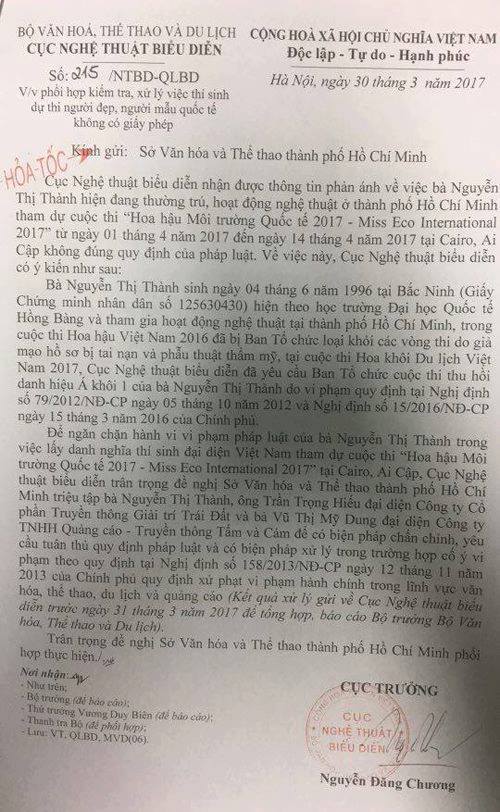 BỘ VĂN HOÁ, THỂ THAO VÀ DU LỊCH
CỤC NGHỆ THUẬT BIỂU DIỄN
CỘNG HOÀ XÃ HỘI CHỦ NGHĨA VIỆT NAM
Độc lập - Tự do - Hạnh phúc
Số: 215 /NTBD-QLBD
Hà Nội, ngày 30 tháng 3 năm 2017
V/v phối hợp kiểm tra, xử lý việc thí sinh
dự thi người đẹp, người mẫu quốc tế
không có giấy phép
HỎA TỐC
Kính gửi: Sở Văn hóa và Thể thao thành phố Hồ Chí Minh
Cục Nghệ thuật biểu diễn nhận được thông tin phản ánh về việc bà Nguyễn
Thị Thành hiện đang thường trú, hoạt động nghệ thuật ở thành phố Hồ Chí Minh
tham dự cuộc thi “Hoa hậu Môi trường Quốc tế 2017 - Miss Eco International
2017” từ ngày 01 tháng 4 năm 2017 đến ngày 14 tháng 4 năm 2017 tại Cairo, Ai
Cập không đúng quy định của pháp luật. Về việc này, Cục Nghệ thuật biểu diễn
có ý kiến như sau:
Bà Nguyễn Thị Thành sinh ngày 04 tháng 6 năm 1996 tại Bắc Ninh (Giấy
Chứng minh nhân dân số 125630430) hiện theo học trường Đại học Quốc tế
Hồng Bàng và tham gia hoạt động nghệ thuật tại thành phố Hồ Chí Minh, trong
cuộc thi Hoa hậu Việt Nam 2016 đã bị Ban Tổ chức loại khỏi các vòng thi do giả
mạo hồ sơ bị tai nạn và phẫu thuật thẩm mỹ, tại cuộc thi Hoa khôi Du lịch Việt
Nam 2017, Cục Nghệ thuật biểu diễn đã yêu cầu Ban Tổ chức cuộc thi thu hồi
danh hiệu Á khôi 1 của bà Nguyễn Thị Thành do vi phạm quy định tại Nghị định
số 79/2012/NĐ-CP ngày 05 tháng 10 năm 2012 và Nghị định số 15/2016/NĐ-CP
ngày 15 tháng 3 năm 2016 của Chính phủ.
Để ngăn chặn hành vi vi phạm pháp luật của bà Nguyễn Thị Thành trong
việc lấy danh nghĩa thí sinh đại diện Việt Nam tham dự cuộc thi “Hoa hậu Môi
trường Quốc tế 2017 - Miss Eco International 2017” tại Cairo, Ai Cập, Cục Nghệ
thuật biểu diễn trân trọng đề nghị Sở Văn hóa và Thể thao thành phố Hồ Chí
Minh triệu tập bà Nguyễn Thị Thành, ông Trần Trọng Hiếu đại diện Công ty Cổ
phần Truyền thông Giải trí Trái Đất và bà Vũ Thị Mỹ Dung đại diện Công ty
TNHH Quảng cáo - Truyền thông Tấm và Cám để có biện pháp chấn chỉnh, yêu
cầu tuân thủ quy định pháp luật và có biện pháp xử lý trong trường hợp cố ý vi
phạm theo quy định tại Nghị định số 158/2013/NĐ-CP ngày 12 tháng 11 năm
2013 của Chính phủ quy định xử phạt vi phạm hành chính trong lĩnh vực văn
hóa, thể thao, du lịch và quảng cáo (Kết quả xử lý gửi về Cục Nghệ thuật biểu
diễn trước ngày 31 tháng 3 năm 2017 để tổng hợp, báo cáo Bộ trưởng Bộ Văn
hóa, Thể thao và Du lịch).
Trân trọng đề nghị Sở Văn hóa và Thể thao thành phố Hồ Chí Minh phối
hợp thực hiện./.
Nơi nhận:
- Như trên;
- Bộ trưởng (để báo cáo);
- Thứ trưởng Vương Duy Biên (để báo cáo);
- Thanh tra Bộ (để phối hợp);
- Lưu: VT, QLBD, MVD(06).
CỤC TRƯỞNG
CỤC
NGHỆ THUẬT
BIỂU DIỄN
Nguyễn Đăng Chương